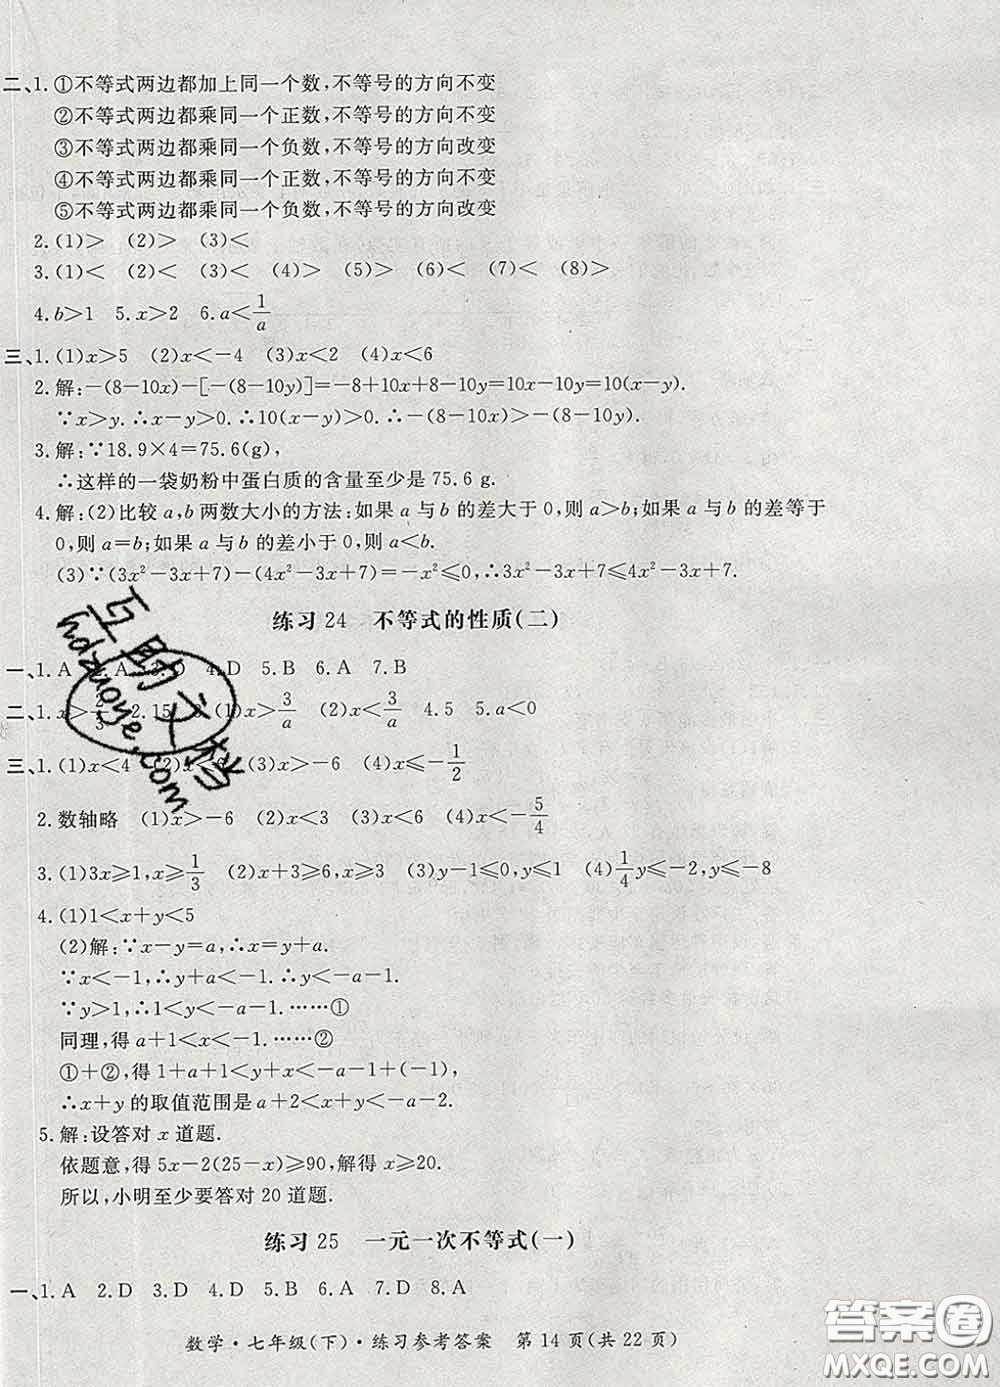 二、1.①不等式两边都加上同一个数,不等号的方向不变
②不等式两边都乘同一个正数,不等号的方向不变
③不等式两边都乘同一个负数,不等号的方向改变
④不等式两边都乘同一个正数,不等号的方向不变
⑤不等式两边都乘同一个负数,不等号的方向改变
2.(1)> (2)> (3)<
3.(1)< (2)< (3)< (4)> (5)> (6)< (7)< (8)>
4.b>1 5.x>2 6.a<1/a
三、1.(1)x>5 (2)x<-4 (3)x<2 (4)x<6
2.解:-(8-10x)-[-(8-10y)]=-8+10x+8-10y=10x-10y=10(x-y).
∵x>y.∴x-y>0.∴10(x-y)>0.∴-(8-10x)>-(8-10y).
3.解:∵18.9×4=75.6(g),
∴这样的一袋奶粉中蛋白质的含量至少是75.6 g.
4.解:(2)比较a,b两数大小的方法:如果a与b的差大于0,则a>b;如果a与b的差等于
0,则a=b;如果a与b的差小于0,则a<b.
(3)∵(3x²-3x+7)-(4x²-3x+7)=-x²≤0,∴3x²-3x+7≤4x²-3x+7.
练习24 不等式的性质(二)
一、1.A A 3.D 4.D 5.B 6.A 7.B
二、1.x> 2.15 (1)x>3/a (2)x<3/a 4.5 5.a<0
三、1.(1)x<4 (2)x< (3)x>-6 (4)x≤-1/2
2.数轴略 (1)x>-6 (2)x<3 (3)x<6 (4)x<-5/4
3.(1)3x≥1,x≥1/3 (2)x+3≥6,x≥3 (3)y-1≤0,y≤1 (4)1/4y≤-2,y≤-8
4.(1)1<x+y<5
(2)解:∵x-y=a,∴x=y+a.
∵x<-1,∴y+a<-1.∴y<-a-1.
∵y>1,∴1<y<-a-1.……①
同理,得a+1<x<-1.……②
①+②,得1+a+1<y+x<-a-1+(-1),
∴x+y的取值范围是a+2<x+y<-a-2.
5.解:设答对x道题.
依题意,得5x-2(25-x)≥90,解得x≥20.
所以,小明至少要答对20道题.
练习25 一元一次不等式(一)
一、1.A 2.D 3.D 4.D 5.B 6.A 7.D 8.A
数学·七年级(下)·练习参考答案 第14页(共22页)
互助文档
hdzuoye.com
答案圈
MXQE.COM